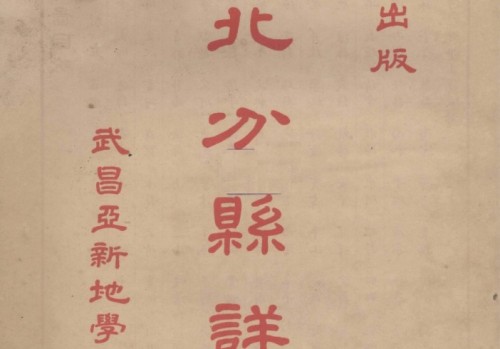 出版
北分縣詳
武昌亞新地學